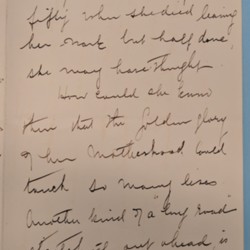 fifty when she died leaving
her work but half done,
she may have thought.
How could she know
then that the Golden glory
of her Motherhood would
touch so many lives
Another kind of a "long road"
out ahead is